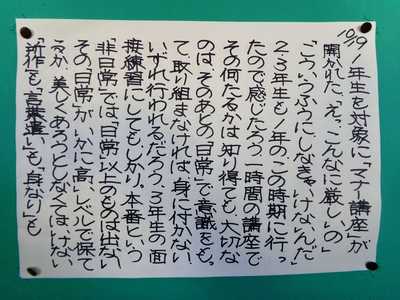 10/19 1年生を対象に「マナー講座」が
開かれた。「えっ、こんなに厳しいの」
「こういうふうにしなきゃいけないんだ」
2・3年生も1年のこの時期に行っ
たので感じたろう。一時間の講座で
その何たるかは知り得ても、大切な
のは、そのあとの「日常」で意識をもっ
て、取り組まなければ身に付かない。
いずれ行われるだろう、3年生の面
接練習にしてもしかり。本番という
「非日常」では、「日常」以上のものは出ない
その「日常」が、いかに高いレベルで保て
るか、美しくあろうとしなくてはいけない
「所作」も「言葉遣い」も「身なり」も